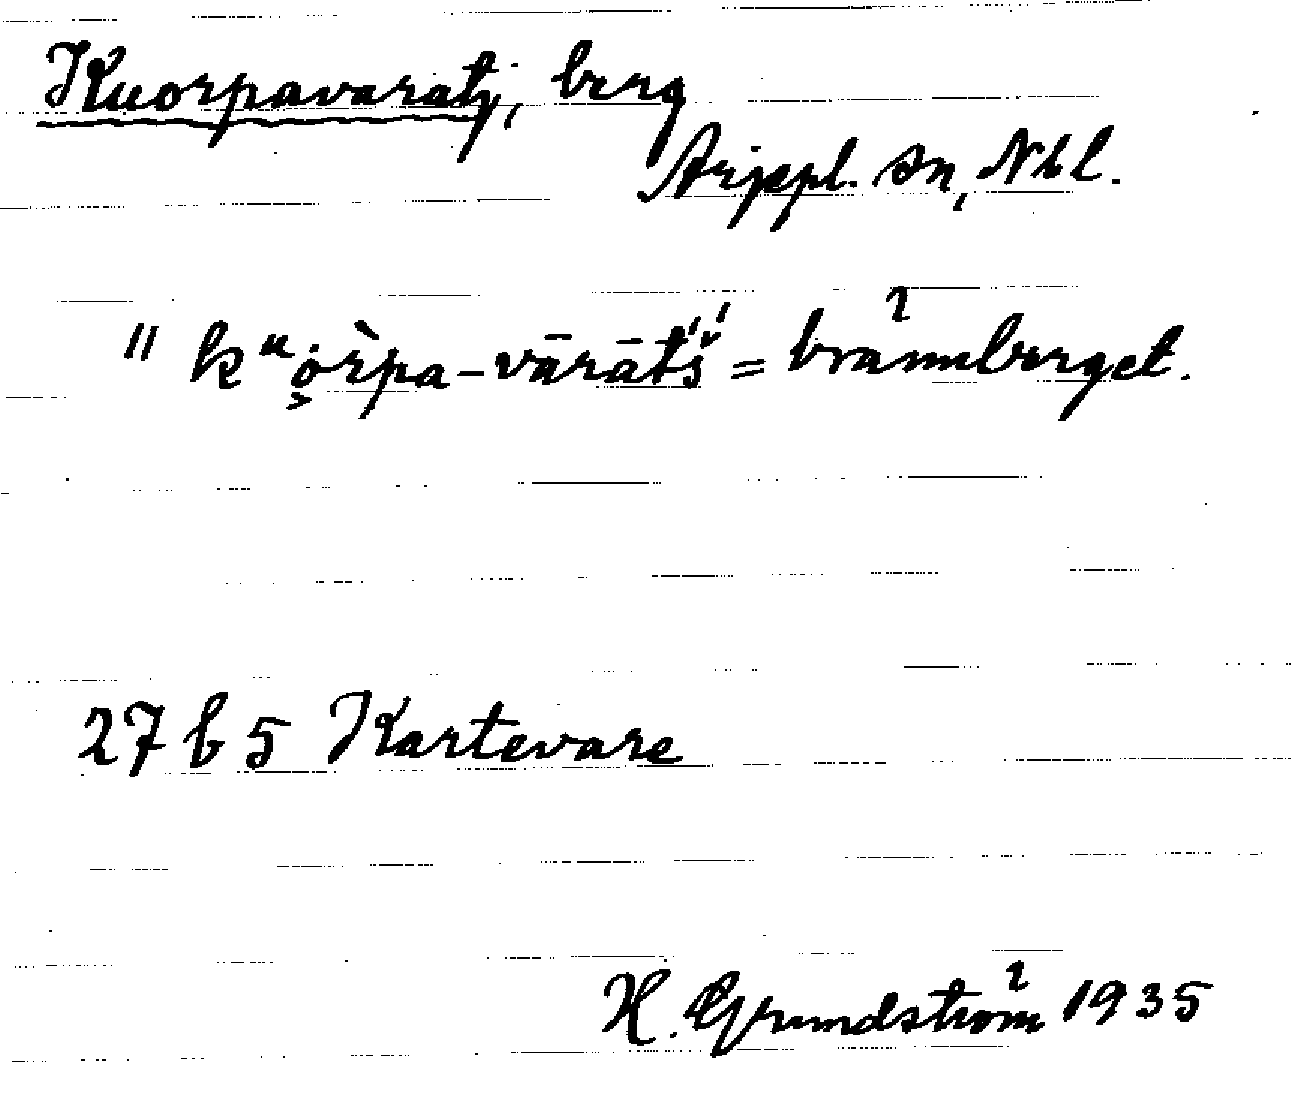 Kuorpavaratj, berg
Arjepl. sn, Nbl.
" kᵘo̜r̀pa-vārātš́ = brännberget.
27 b 5 Kartevare
H. Grundström 1935